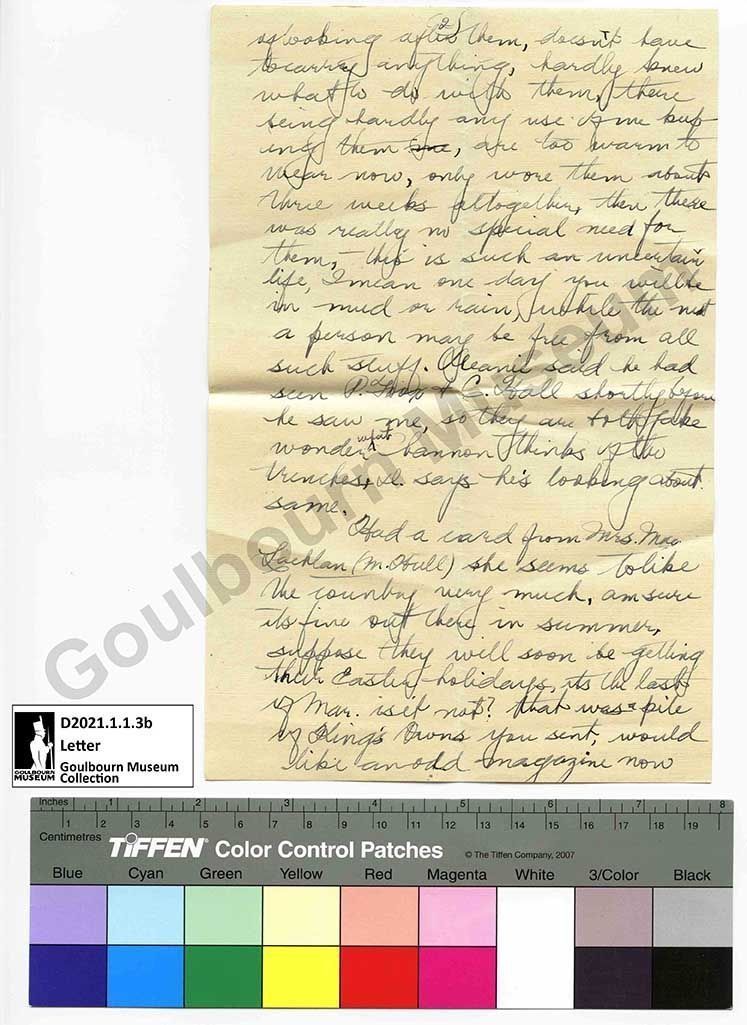 (2)
of looking after them, doesn't have
to carry anything, hardly knew
what to do with them, there
being hardly any use of me keep
ing them , are too warm to
wear now, only wore them about
three weeks altogether, then there
was really no special need for
them, - this is such an uncertain
life, I mean one day you will be
in mud or rain, while the next
a person may be free from all
such stuff. said he had
seen P. & C. Hall shortly before
he saw me, so they are both
wonder what Shannon thinks of the
trenches, D. says he's looking about
same.
Had a card from Mrs. Mac
Lachlan (M. Hall) she seems to like
the country very much, am sure
its fine out there in summer,
suppose they will soon be getting
their Easter holidays, its the last
of Mar. is it not? that was a pile
of King's Owns you sent, would
like an odd magazine now
Goulbourn Museum
D2021.1.1.3b
Letter
Goulbourn Museum
Collection
GOULBOURN
MUSEUM
Inches 1 2 3 4 5 6 7 8
Centimetres 1 2 3 4 5 6 7 8 9 10 11 12 13 14 15 16 17 18 19
TIFFEN® Color Control Patches © The Tiffen Company, 2007
Blue Cyan Green Yellow Red Magenta White 3/Color Black